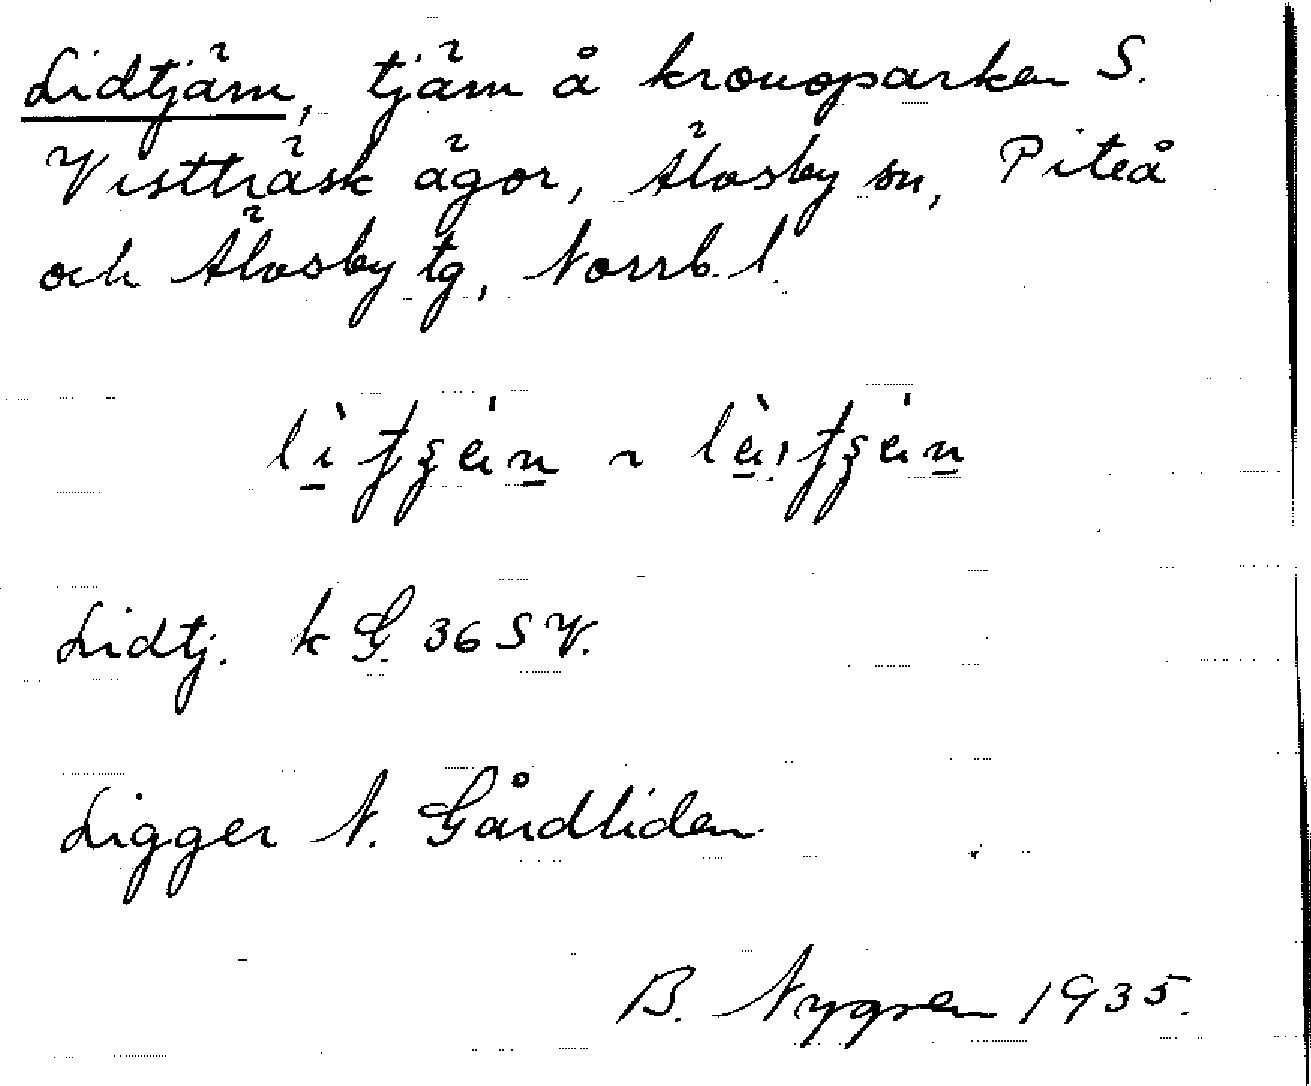 Lidtjäm, tjäm å kronoparken S.
Vistträsk ägor, Älvsby sn, Piteå
och Älvsby tg, Norrb. l.
Lidtj. k G. 36 S V.
Ligger N. Gårdliden
B. Nygren 1935.